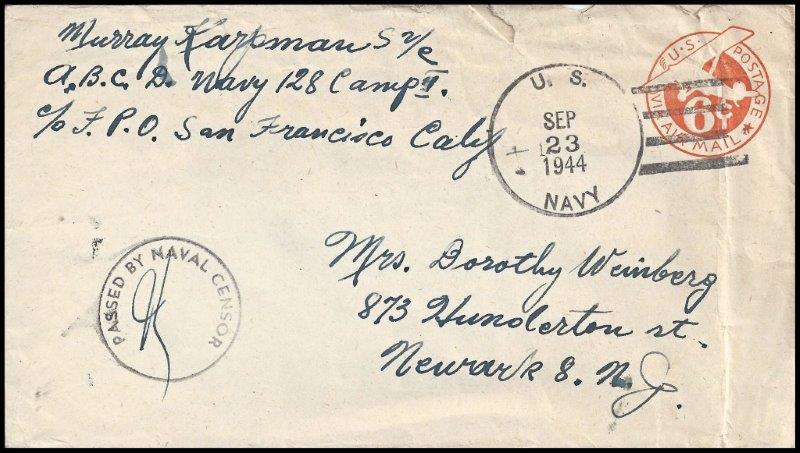 Murray Karpman S 2/c
A.B.C. D. Navy 128 Camp II.
c/o F. P. O. San Francisco Calif
U. S.
SEP
23
1944
NAVY
U.S. POSTAGE
VIA AIR MAIL
6¢
PASSED BY NAVAL CENSOR
Mrs. Dorothy Weinberg
873 Hunderton st.
Newark 8. N. J.